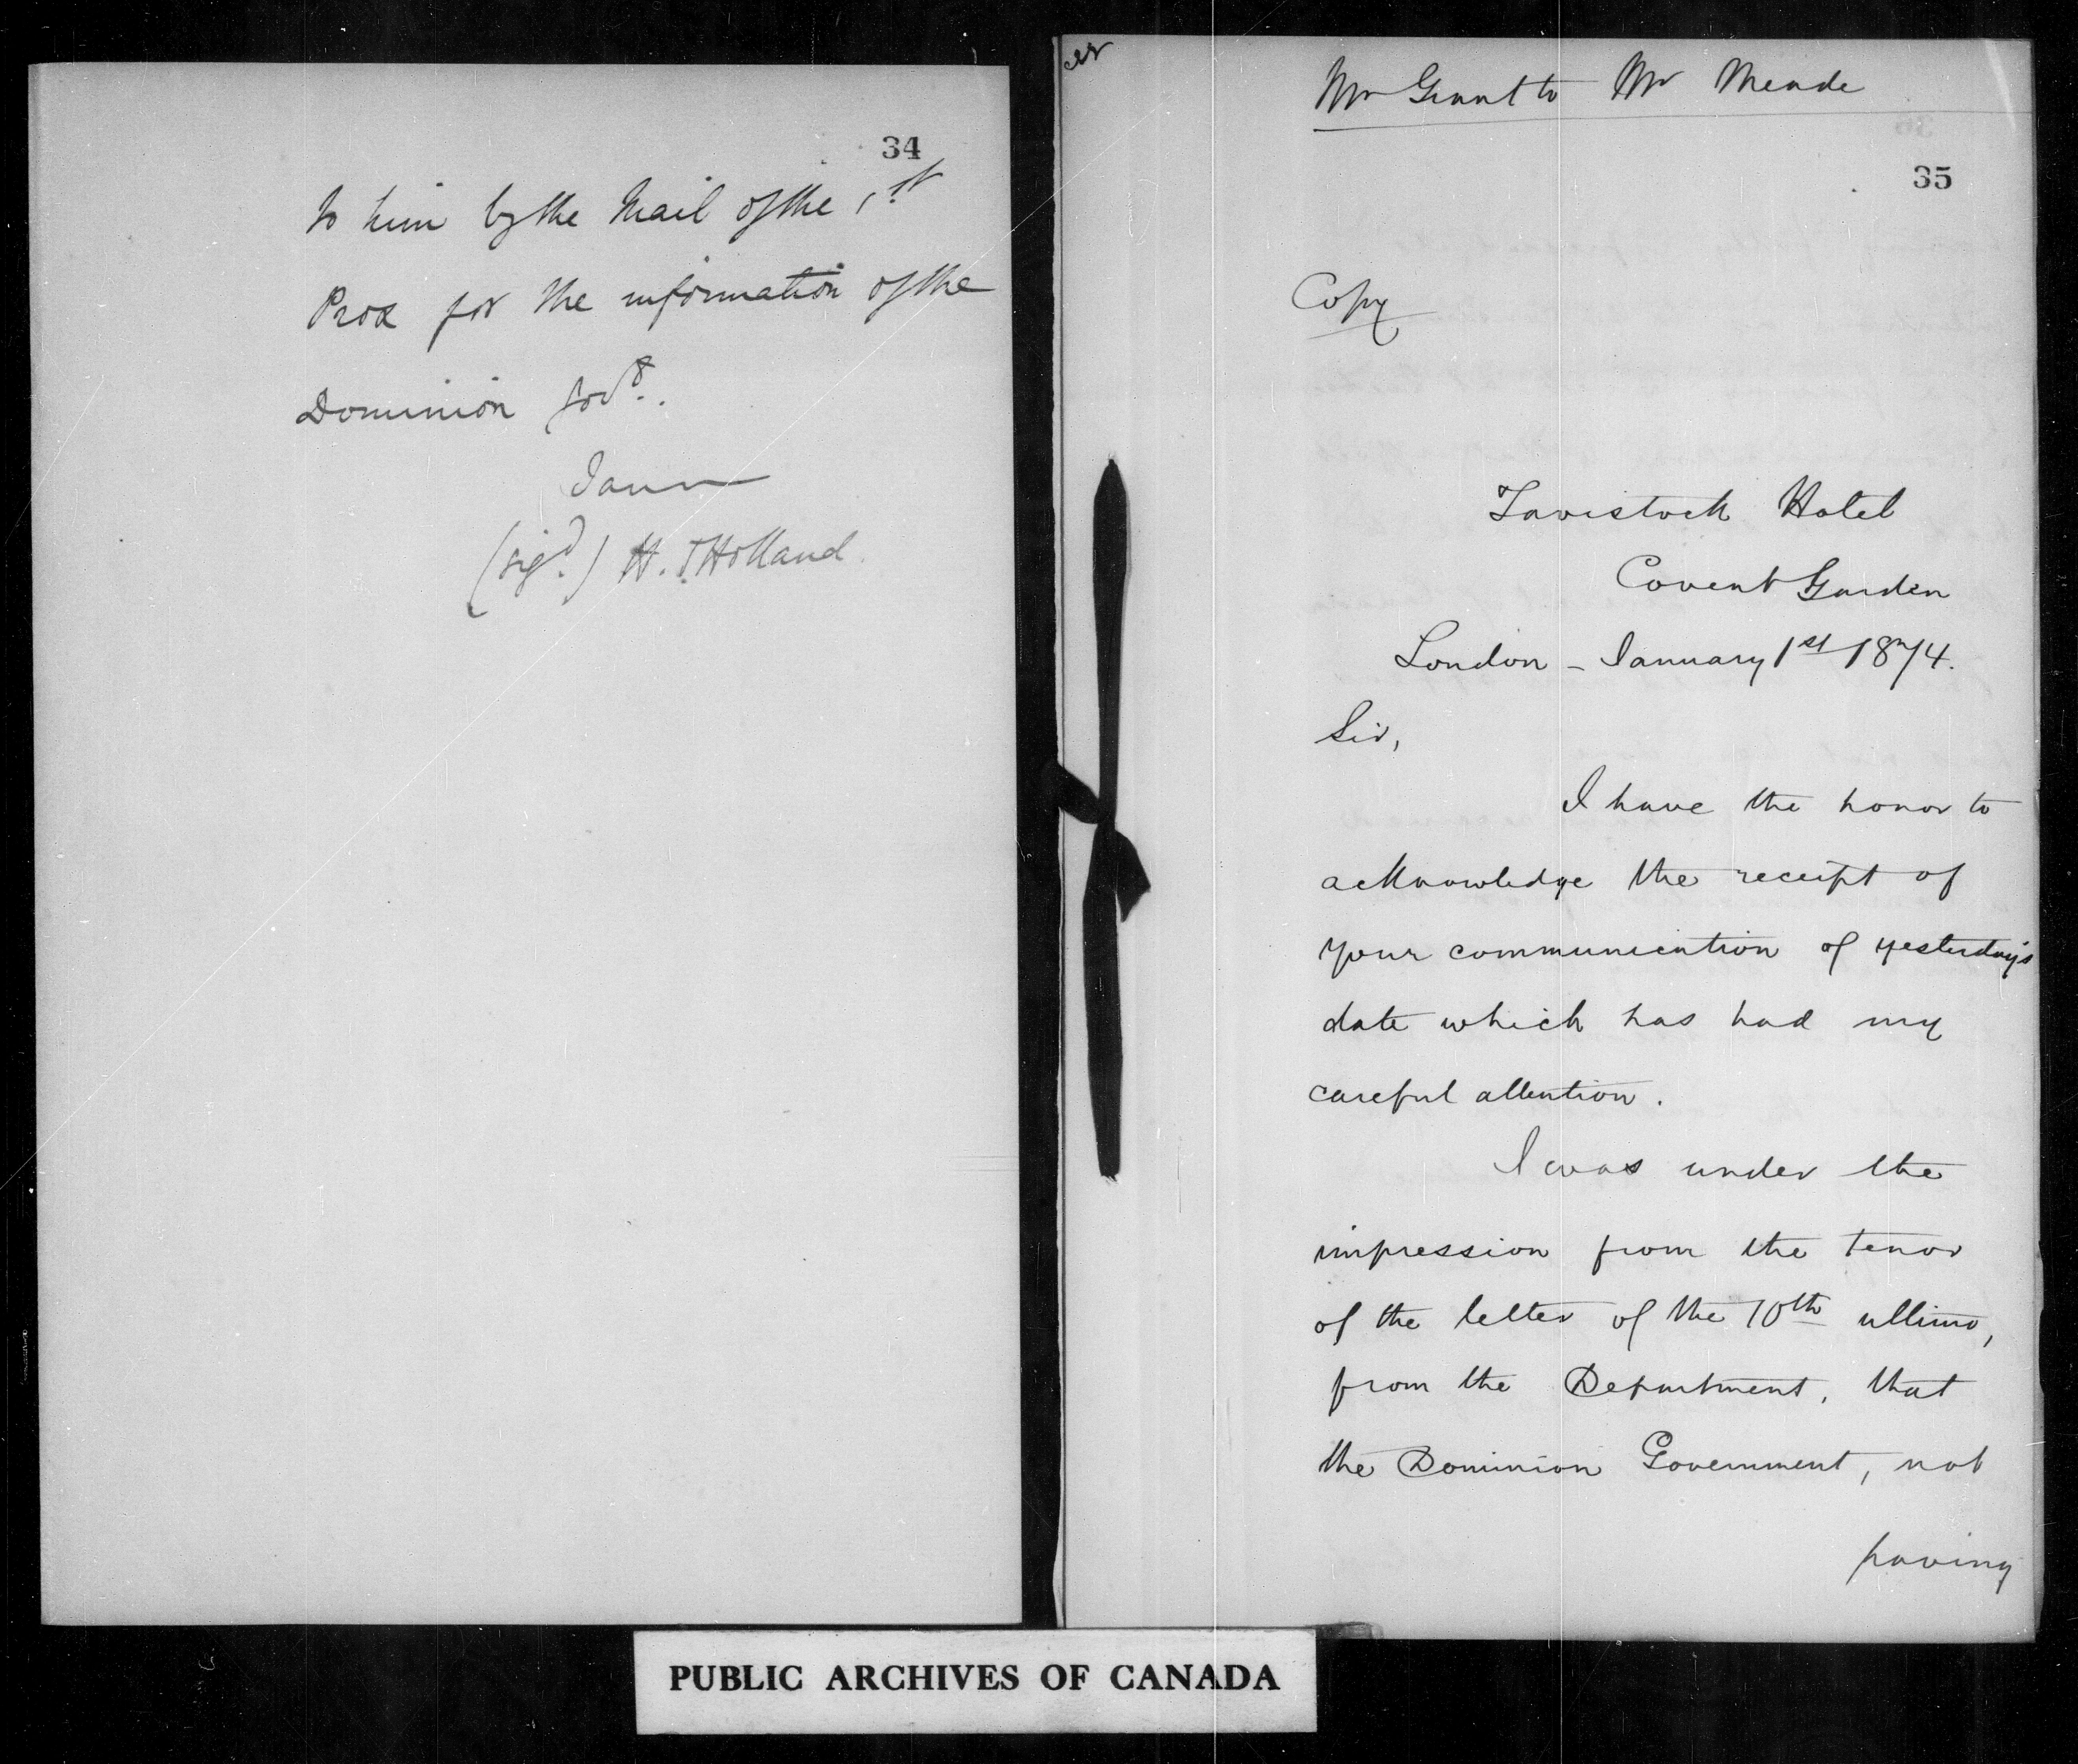 34
to him by the Mail of the 1st
Prox for the information of the
Dominion Govt.
I am
(sigd.) H. T. Holland
Mr Grant to Mr Meade
35
Copy
Tavistock Hotel
Covent Garden
London - January 1st 1874.
Sir,
I have the honor to
acknowledge the receipt of
your communication of yesterday's
date which has had my
careful attention.
I was under the
impression from the tenor
of the letter of the 10th ultimo,
from the Department, that
the Dominion Government, not
having
PUBLIC ARCHIVES OF CANADA